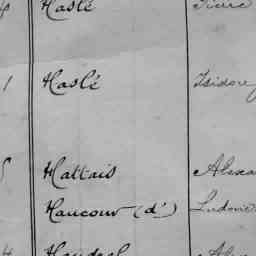 Hasté Pierre
1 Haslé Isidore
Hattais Alexa
Haucour (d') Ludovic
4